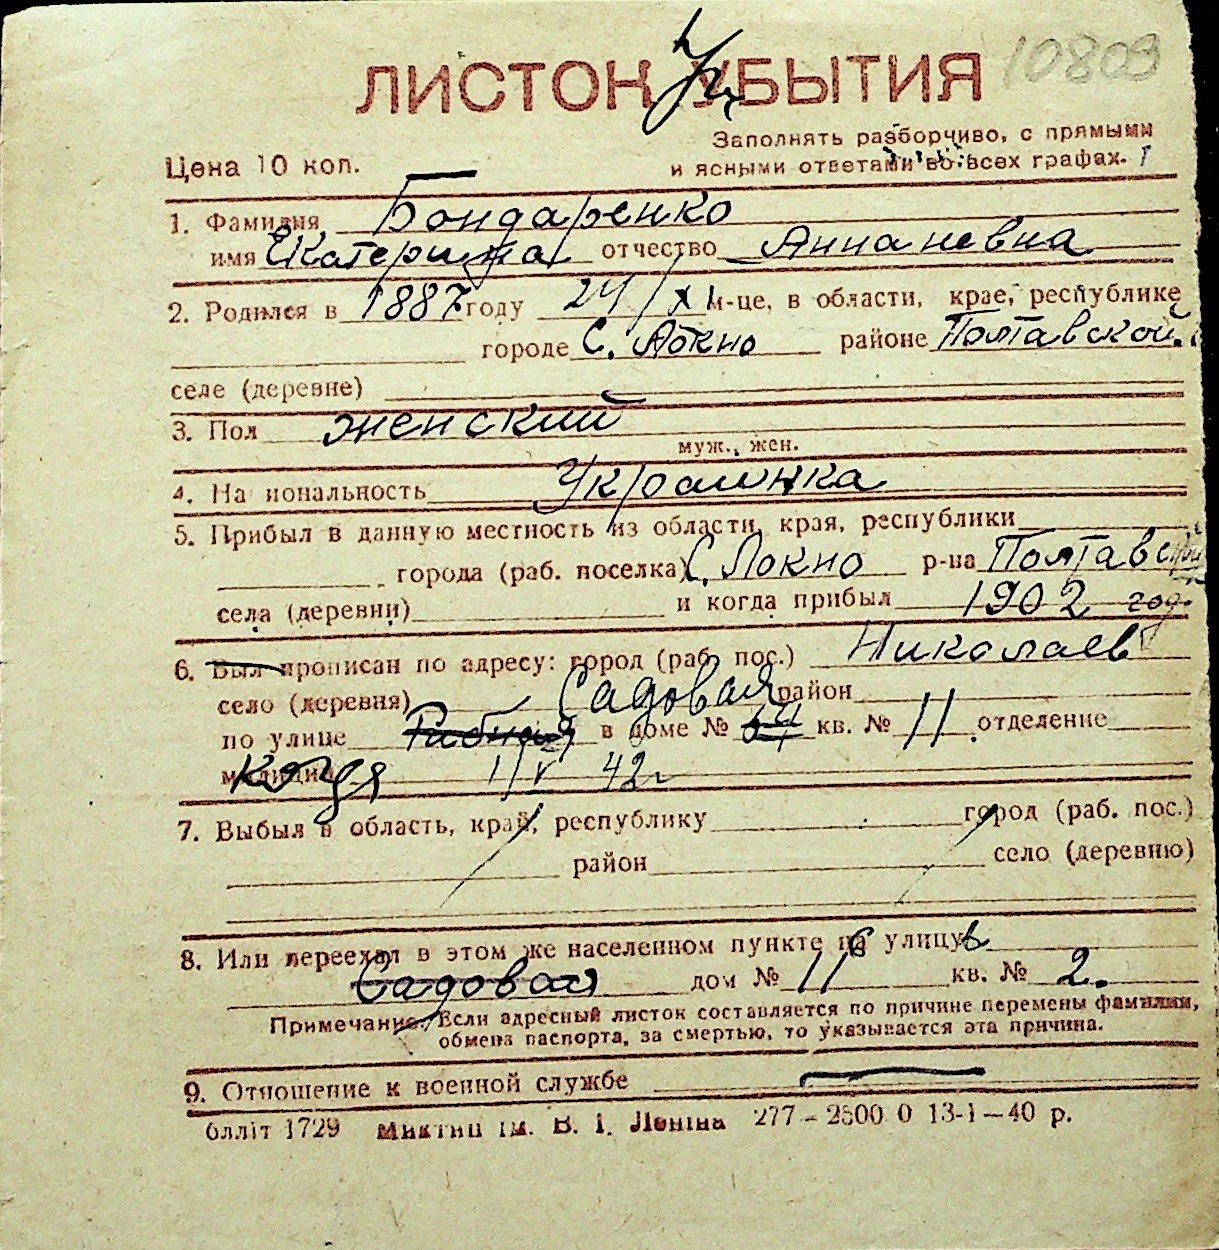 10809
ЛИСТОК УБЫТИЯ
Заполнять разборчиво, с прямыми
Цена 10 коп. и ясными ответами во всех графах.
1. Фамилия Бондаренко
имя Екатерина отчество Ананиевна
2. Родился в 1887 году 24/XI м-це, в области, крае, республике
городе С. Локно районе Полтавской
селе (деревне)
3. Пол женский
муж., жен.
4. На иональность Украинка
5. Прибыл в данную местность из области, края, республики
города (раб. поселка) С. Локно р-на Полтавской
села (деревни) и когда прибыл 1902 год.
6. Был прописан по адресу: город (раб. пос.) Николаев
село (деревня) Садовая район
по улице Рибная в доме № кв. № 11 отделение
милиции когда 1/V 42 г
7. Выбыл в область, край, республику город (раб. пос.)
район село (деревню)
8. Или переехал в этом же населенном пункте на улицу
Садовая дом № 11 кв. № 2.
Примечание. Если адресный листок составляется по причине перемены фамилии,
обмена паспорта, за смертью, то указывается эта причина.
9. Отношение к военной службе
блліт 1729 ім. В. І. Леніна 277—2500 0 13-1—40 р.